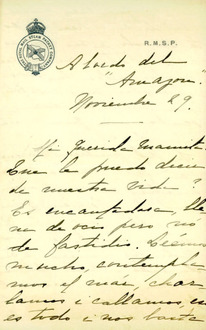 ROYAL MAIL STEAM PACKET COMPANY
R.M.S.P.
A bordo del
"Amazon"
Noviembre 29.
Mi querida Mamita
Que la puedo decir
de nuestra vida?
Es encantadora, lle
na de sol pero no
de fastidio. Leemos
mucho, contempla
mos el mar, char
lamos i callamos, en
es todo i nos basta